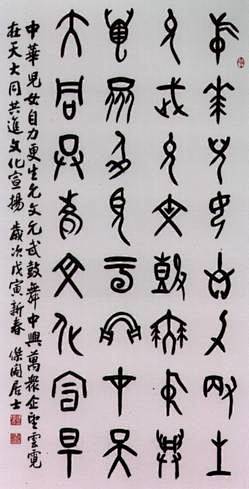 中華兒女自力更生
允武允文鼓舞中興
萬衆企望雲霓在天
大同共進文化宣揚
中華兒女自力更生允文允武鼓舞中興萬衆企望雲霓
在天大同共進文化宣揚 歲次戊寅新春 居士